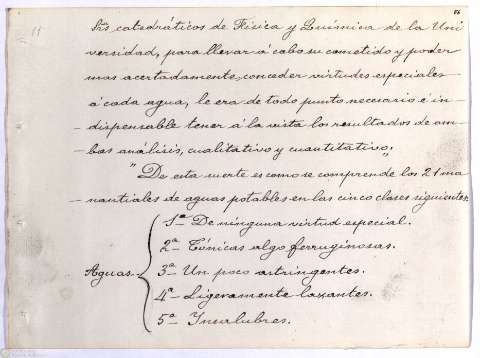 86
11
Srs catedráticos de Física y Química de la Uni
versidad, para llevar á cabo su cometido y poder
mas acertadamente, conceder virtudes especiales
á cada agua, le era de todo punto necesario é in-
-dispensable tener á la vista los resultados de am-
-bos análisis, cualitativo y cuantitativo."
"De esta suerte es como se comprende los 21 ma-
-nantiales de aguas potables en las cinco clases siguientes.
1ª De ninguna virtud especial.
2ª Tónicas algo ferruginosas.
Aguas. 3ª Un poco astringentes.
4ª Ligeramente laxantes.
5ª Insalubres.